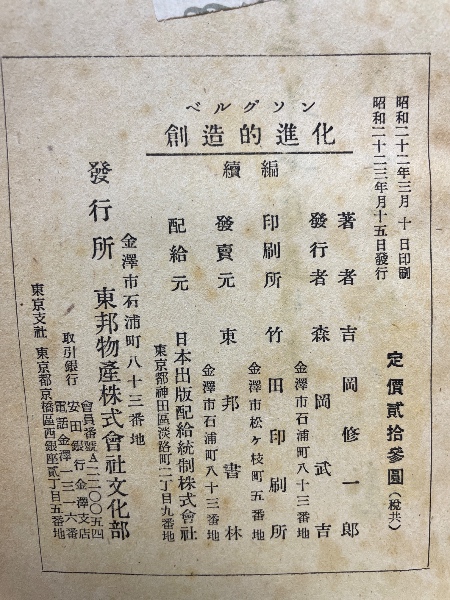 ベルグソン
創造的進化
續編
昭和二十二年三月十日印刷
昭和二十二年三月十五日發行
定價貳拾參圓(稅共)
著者 吉岡修一郎
發行者 森岡武吉
金澤市石浦町八十三番地
印刷所 竹田印刷所
金澤市松ヶ枝町五番地
發賣元 東邦書林
金澤市石浦町八十三番地
配給元 日本出版配給統制株式會社
東京都神田區淡路町二丁目九番地
金澤市石浦町八十三番地
發行所 東邦物產株式會社文化部
會員番號A二二〇〇五四
取引銀行 安田銀行金澤支店
電話金澤一三一六番
東京支社 東京都京橋區西銀座貳丁目五番地